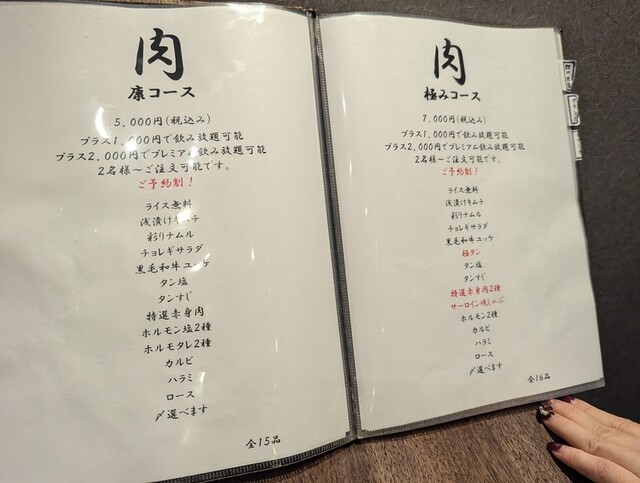 肉
康コース
5,000円(税込み)
プラス1,000円で飲み放題可能
プラス2,000円でプレミアム飲み放題可能
2名様～ご注文可能です。
ご予約割!
ライス無料
浅漬けキムチ
彩りナムル
チョレギサラダ
黒毛和牛ユッケ
タン塩
タンすじ
特選赤身肉
ホルモン塩2種
ホルモタレ2種
カルビ
ハラミ
ロース
〆選べます
全15品
肉
極みコース
7,000円(税込み)
プラス1,000円で飲み放題可能
プラス2,000円でプレミアム飲み放題可能
2名様～ご注文可能です。
ご予約割!
ライス無料
浅漬けキムチ
彩りナムル
チョレギサラダ
黒毛和牛ユッケ
極タン
タン塩
タンすじ
特選赤身肉2種
サーロイン焼しゃぶ
ホルモン2種
カルビ
ハラミ
ロース
〆選べます
全16品